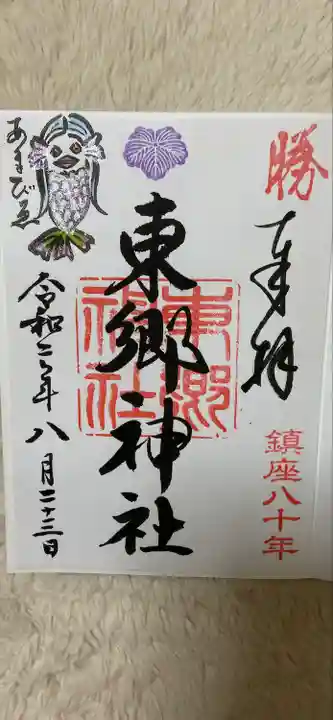 勝
奉拝
鎮座八十年
東郷神社
東郷神社
令和二年八月二十三日
あまびゑ